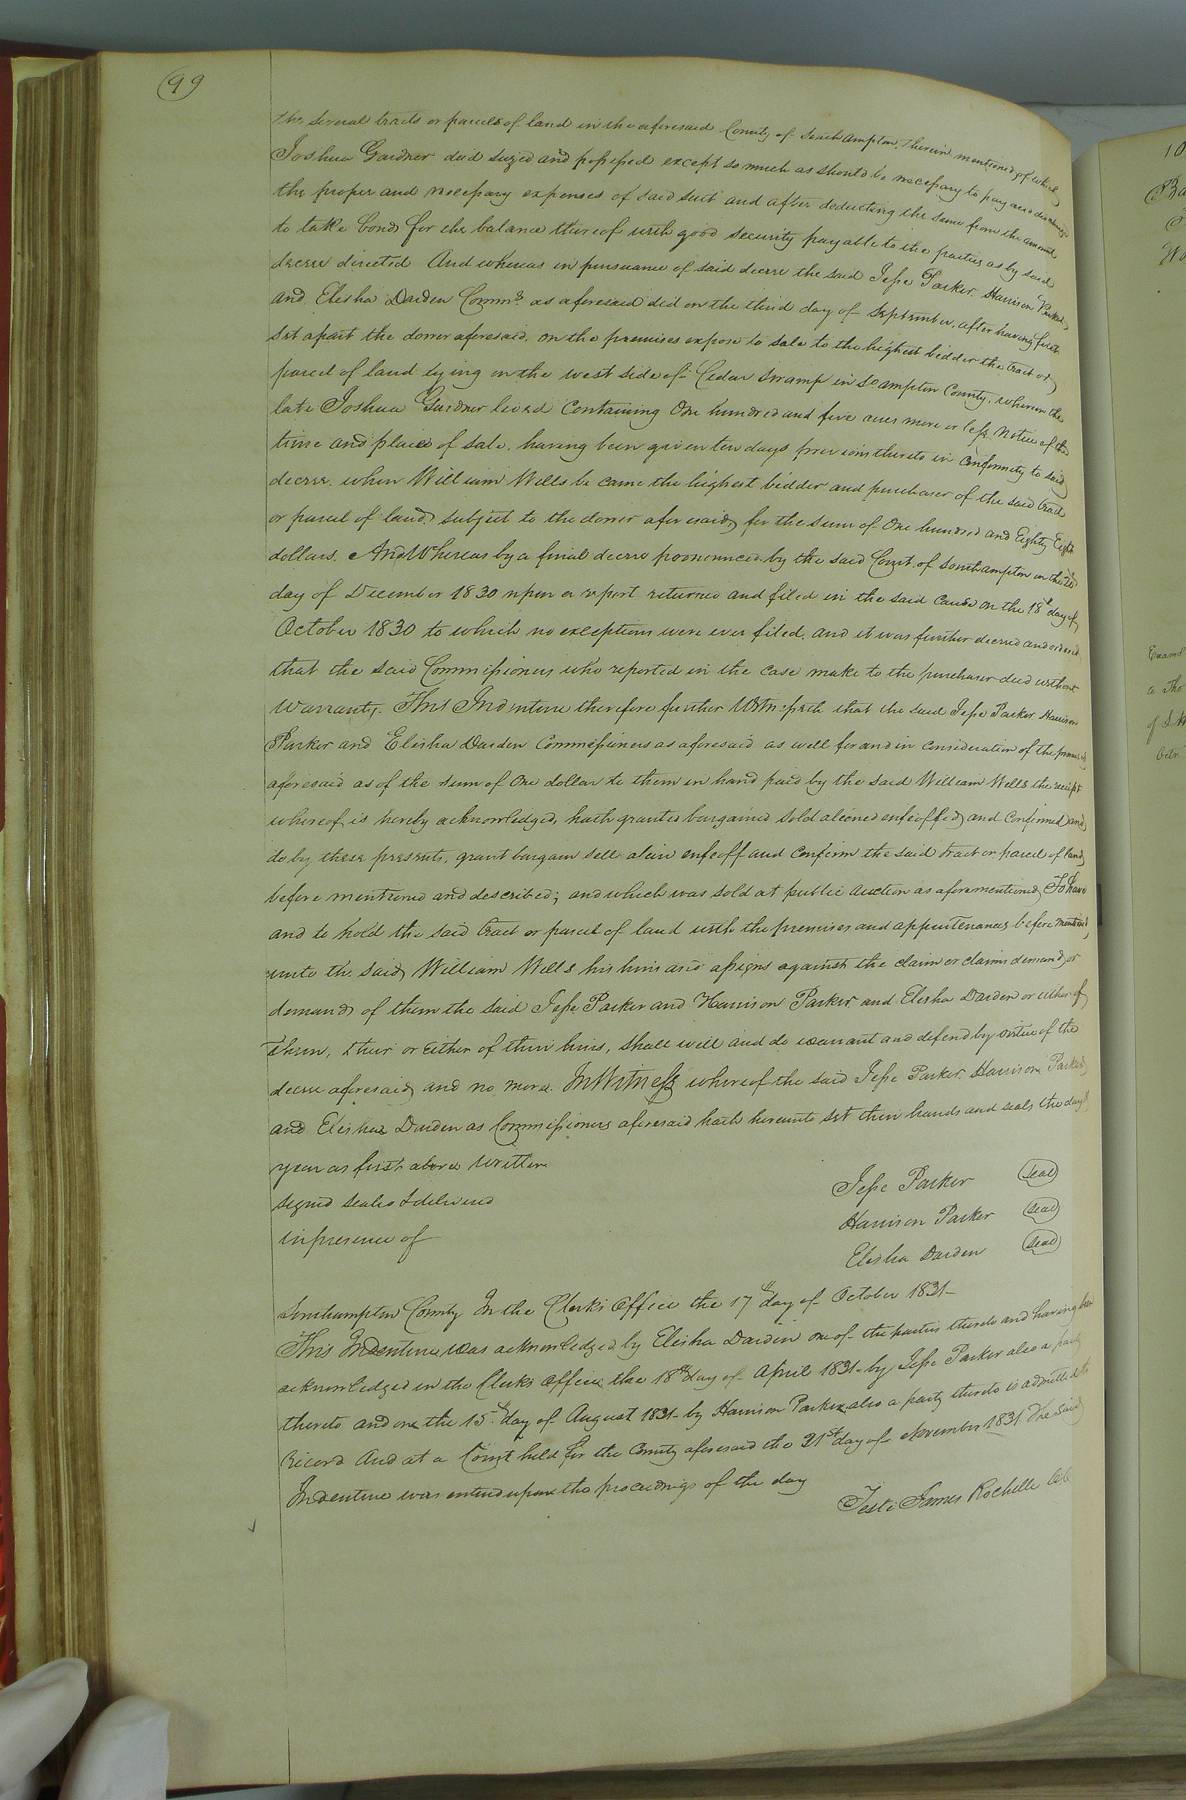 99
the several tracts or parcels of land in the aforesaid County of Southampton, therein mentioned, of which
Joshua Gardner died seized and possessed except so much as should be necessary to pay and discharge
the proper and necessary expenses of said suit and after deducting the same from the amount
to take bonds for the balance thereof with good security payable to the parties as by said
decree directed And whereas in pursuance of said decree the said Jesse Parker, Harrison Parker,
and Elisha Darden Commrs as aforesaid did on the third day of September, after having first
set apart the dower aforesaid, on the premises expose to sale to the highest bidder the tract or
parcel of land lying on the west side of Cedar Swamp in So ampton County, whereon the
late Joshua Gardner lived Containing One hundred and five acres more or less, Notice of the
time and place of sale, having been given ten days previous thereto in Conformity to said
decree, when William Wells be came the highest bidder and purchaser of the said tract
or parcel of land, subject to the dower aforesaid, for the sum of One hundred and Eighty Eight
dollars. And Whereas by a final decree pronounced by the said Court of Southampton on the
day of December 1830 upon a report returned and filed in the said Cause on the 18th day of
October 1830 to which no exceptions were ever filed, and it was further decreed and ordered
that the said Commissioners who reported in the case make to the purchaser deed without
Warranty. This Indenture therefore further Witnesseth that the said Jesse Parker Harrison
Parker and Elisha Darden Commissioners as aforesaid as well for and in Consideration of the premises
aforesaid as of the sum of One dollar to them in hand paid by the said William Wells the receipt
whereof is hereby acknowledged, hath granted bargained sold aliened enfeoffed and Confirmed and
do by these presents, grant bargain sell alien enfeoff and Confirm the said tract or parcel of land,
before mentioned and described; and which was sold at public Auction as aforementioned, To have
and to hold the said tract or parcel of land with the premises and appurtenances before mentioned,
unto the said William Wells his heirs and assigns against the claim or claims demand or
demands of them the said Jesse Parker and Harrison Parker and Elisha Darden or either of
them, their or either of their heirs, shall will and do warrant and defend by virtue of the
decree aforesaid, and no more. In Witness whereof the said Jesse Parker, Harrison Parker,
and Elisha Darden as Commissioners aforesaid hath hereunto set their hands and seals the day &
year as first above Written
signed sealed & delivered
in presence of
Jesse Parker seal
Harrison Parker seal
Elisha Darden seal
Southampton County In the Clerk's Office the 17th day of October 1831
This Indenture was acknowledged by Elisha Darden one of the parties thereto and having been
acknowledged in the Clerks Office the 18th day of April 1831 by Jesse Parker also a party
thereto and on the 15th day of August 1831 by Harrison Parker also a party thereto is admitted to
record And at a Court held for the County aforesaid the 21st day of November 1831 The said
Indenture was entered upon the proceedings of the day
Teste James Rochelle CC